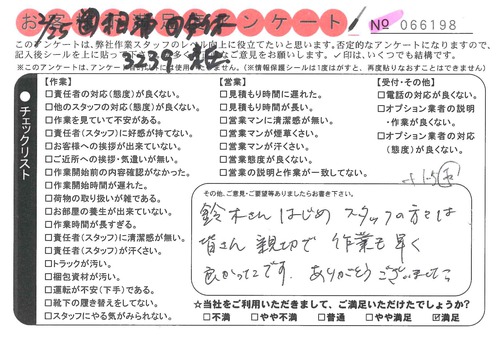 № 066198
このアンケートは、弊社作業スタッフのレベル向上に役立てたいと思います。否定的なアンケートになりますので、
※このアンケートは、アンケート
チェックリスト
【作業】
□責任者の対応(態度)が良くない。
□他のスタッフの対応(態度)が良くない。
□作業を見ていて不安がある。
□責任者(スタッフ)に好感が持てない。
□お客様への挨拶が出来ていない。
□ご近所への挨拶・気遣いが無い。
□作業開始前の内容確認がなかった。
□作業開始時間が遅れた。
□荷物の取り扱いが雑である。
□お部屋の養生が出来ていない。
□作業時間が長すぎる。
□責任者(スタッフ)に清潔感が無い。
□責任者(スタッフ)が汗くさい。
□トラックが汚い。
□梱包資材が汚い。
□運転が不安(下手)である。
□靴下の履き替えをしてない。
□スタッフにやる気がみられない。
【営業】
□見積もり時間に遅れた。
□見積もり時間が長い。
□営業マンに清潔感が無い。
□営業マンが煙草くさい。
□営業マンが汗くさい。
□営業態度が良くない。
□営業の説明と作業が一致してない。
【受付・その他】
□電話の対応が良くない。
□オプション業者の説明
・作業が良くない。
□オプション業者の対応
(態度)が良くない。
その他、ご意見・ご要望等ありましたらお書き下さい。
鈴木さんはじめ スタッフの方々は
皆さん 親切で 作業も早く
良かったです。ありがとうございました
☆当社をご利用いただきまして、ご満足いただけたでしょうか?
□不満 □やや不満 □普通 □やや満足 ☑満足